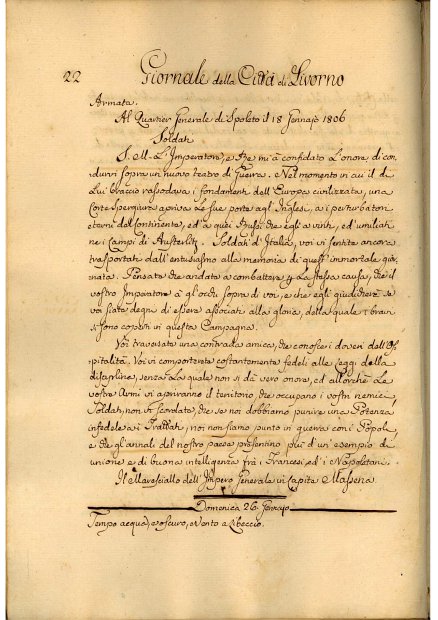 22 Giornale della Città di Livorno
Armata.
Al Quartier Generale di Spoleto il 18 Gennajo 1806
Soldati
S. M. L'Imperatore, e Re mi à confidato L'onore di con,
durvi sopra un nuovo teatro di Guerra. Nel momento in cui il di
Lui braccio rassodava i fondamenti dell'Europa civilizzata, una
Corte Spergiura apriva Le sue porte agl'Inglesi, a i perturbatori
eterni del Continente, ed a quei Russi che egli a vinti, ed umiliati
nei Campi di Austerlitz. Soldati d'Italia, voi vi sentite ancora
trasportati dall'entusiasmo alla memoria di quest'immortale gior,
nata. Pensate che andate a combattere La stessa causa, che il
vostro Imperatore à gl'occhi sopra di voi, e che egli giudicherà se
voi siate degni di essere associati alla gloria, della quale i bravi
si sono coperti in questa Campagna.
Voi traversate una contrada amica, che conosce i doveri dell'Os,
pitalità. Voi vi comporterete costantemente fedeli alle Leggi della
disciplina, senza La quale non si dà vero onore, ed allorchè Le
vostre Armi vi apriranno il territorio, che occupano i vostri nemici
Soldati, non vi scordate, che se noi dobbiamo punire una Potenza
infedele a i Trattati, noi non siamo punto in guerra con i Popoli
e che gl'annali del nostro paese presentino più d'un'esempio di
unione e di buona intelligenza frà i Francesi, ed i Napoletani.
Il Maresciallo dell'Impero Generale in Capite Massena
Domenica 26 Gennajo
Tempo acqua, e oscuro, e Vento a Libeccio.